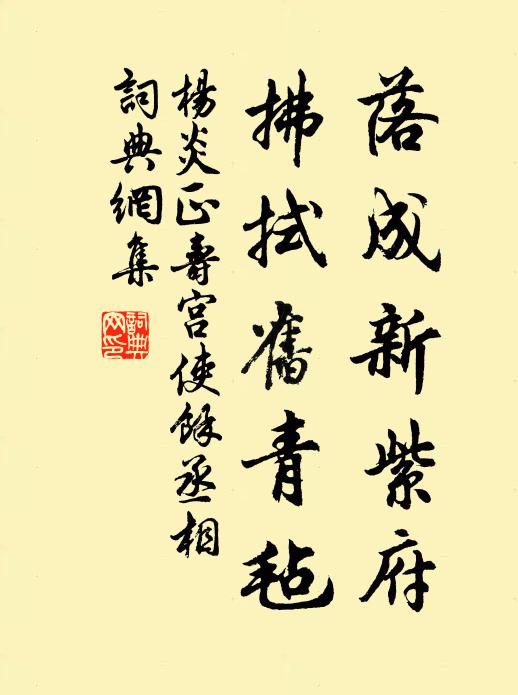 落成新紫府
拂拭舊青毡
楊炎正壽宮使餘丞相
詞典網集
詞典網印